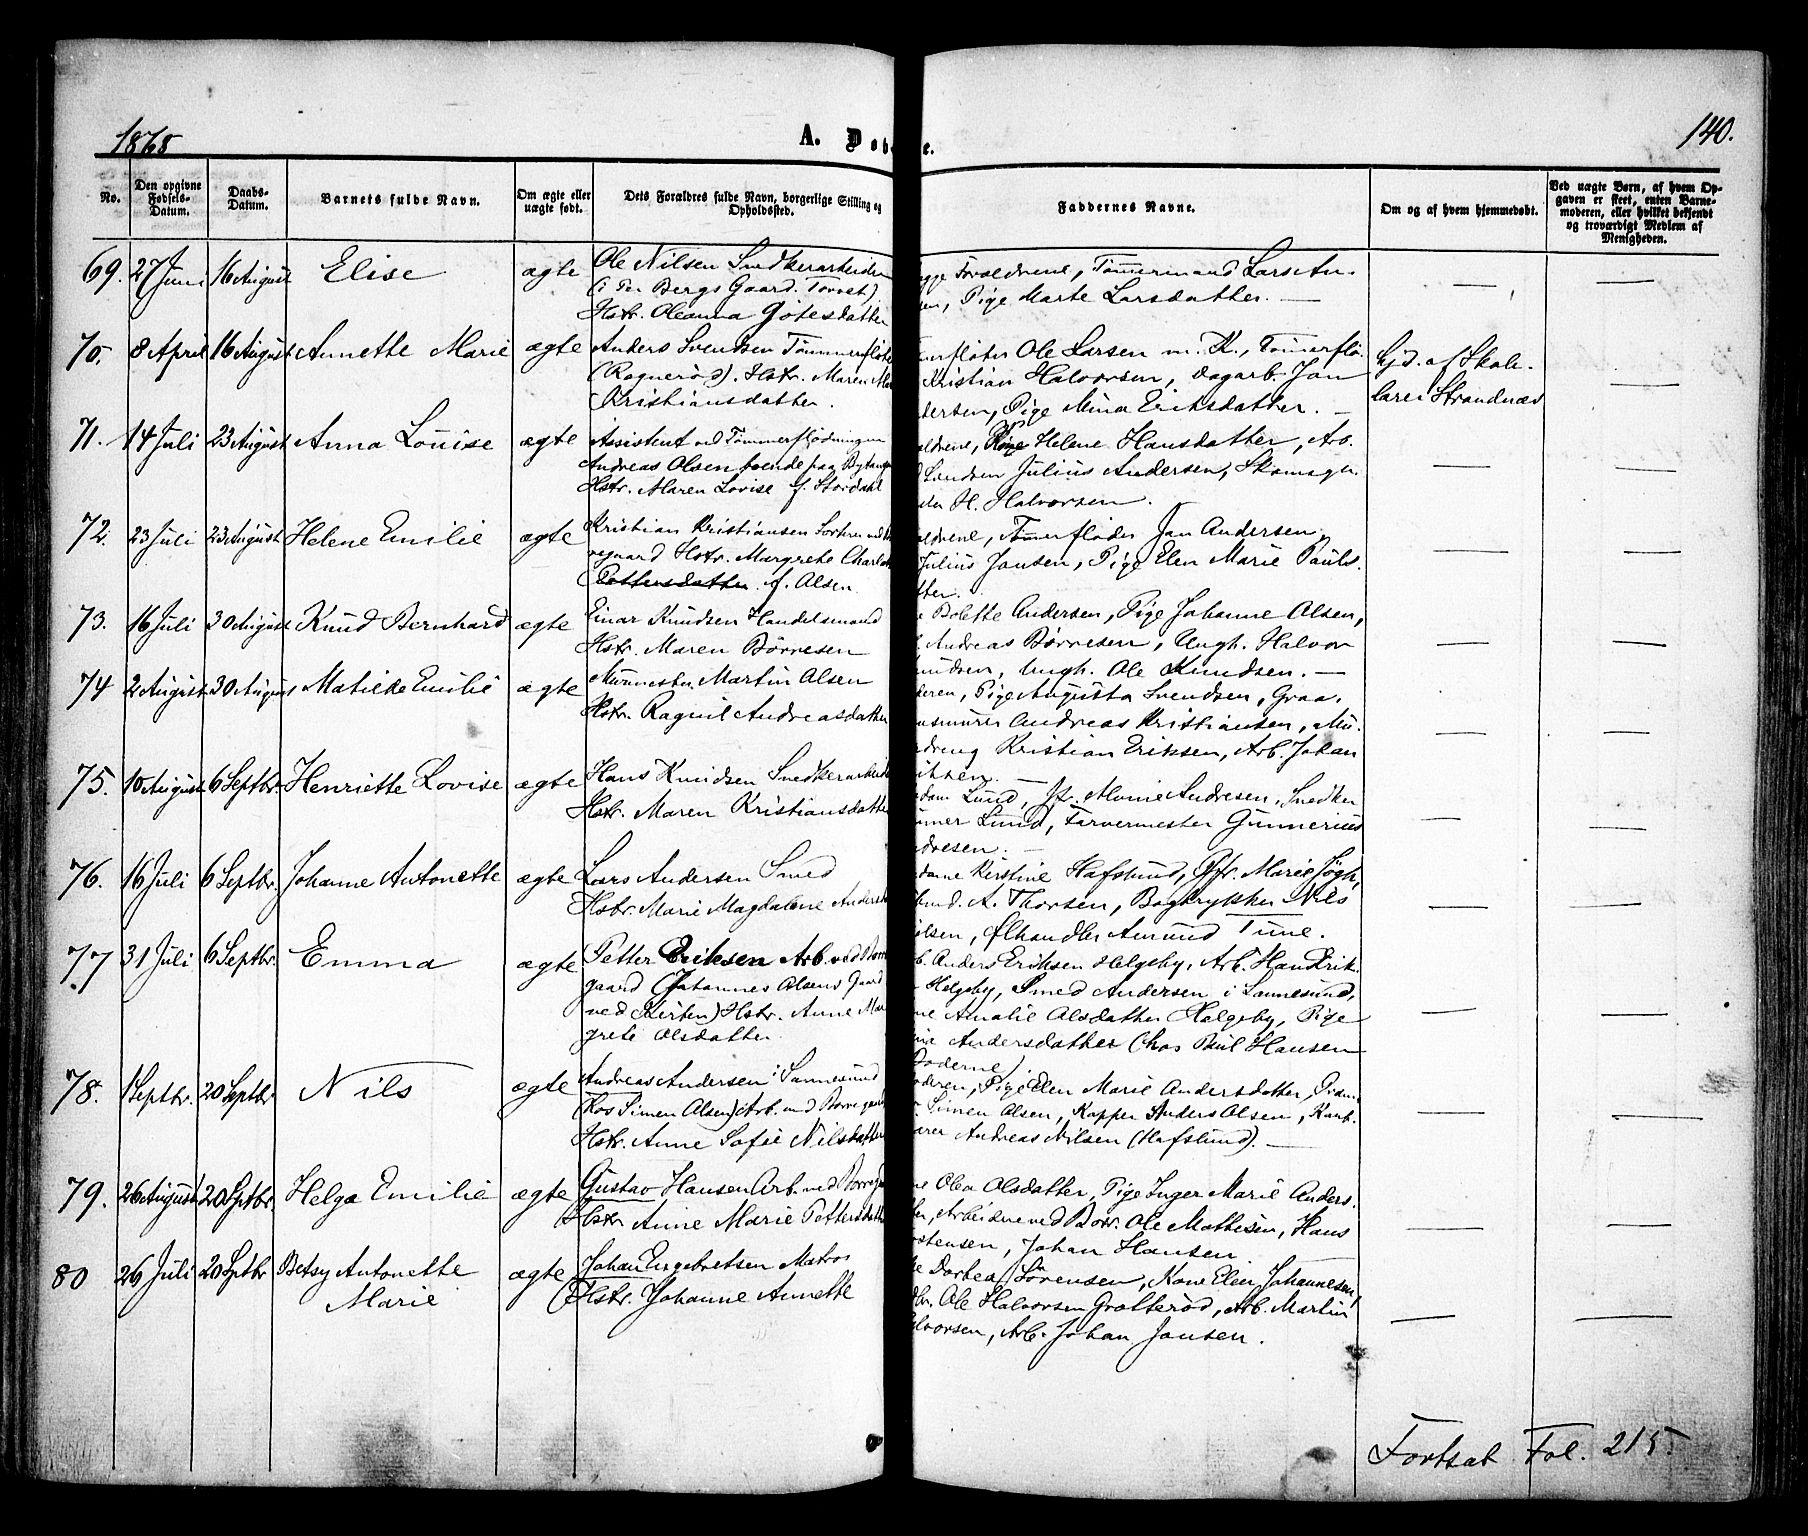 1868
A. Døb e.
140.
No.
Den opgivne Fødsels-Datum.
Daabs-Datum.
Barnets fulde Navn.
Om ægte eller uægte født.
Dets Forældres fulde Navn, borgerlige Stilling og Opholdssted.
Faddernes Navne.
Om og af hvem hjemmedøbt.
Ved uægte Børn, af hvem Opgaven er skeet, enten Barnemoderen, eller hvilket bekjendt og troværdigt Medlem af Menigheden.
69. 27 Juni 16 August Elise ægte
Ole Nilsen Snedkerarbeider
(i Per Bergs Gaard. Torvet)
Hstr. Oleanna Gotesdatter
gge Forældrene, Tømmermand Lars An-
en, Pige Marte Larsdatter. —
70. 8 April 16 August Annette Marie ægte
Anders Svendsen Tømmerfløter
(Rognerød). Hstr. Maren M
Kristiansdatter.
merfløter Ole Larsen m. K., Tømerflø-
Kristian Halvorsen, Dagarb. Jan
dersen, Pige Mina Eriksdatter. —
Hjd. af Skole-
lærer Strandnæs
71. 14 Juli 23 August Anna Louise ægte
Assistent ved Tømmerflødningen
Andreas Olsen boende paa Bytangen
Hstr. Maren Lovise f. Stordahl
ældrene, Pige Helene Hansdatter, Arb.
Svendsen Julius Andersen, Skomager
H. Halvorsen.
72. 23 Juli 23 August Helene Emilie ægte
Kristian Kristiansen Sorterer ved Bor
regaard Hstr. Margrete Charlotte
(Pettersdatter f. Olsen.
ældrene, Tømerfløder Jan Andersen,
Julius Jansen, Pige Elen Marie Pauls-
tter.
73. 16 Juli 30 August Knud Bernhard ægte
Einar Knudsen Handelsmand
Hstr. Maren Børresen
e Bolette Andersen, Pige Johanne Olsen,
Andreas Børresen, Ungk. Halvor
nudsen, Ungk. Ole Knudsen. —
74 2 August 30 August Matilde Emilie ægte
Murmester Martin Olsen
Hstr. Ragnil Andreasdatter
deren, Pige Augusta Svendsen, Graa-
ensmurer Andreas Kristiansen, Mu-
dreng Kristian Eriksen, Arb. Johan
75. 10 August 6 Septbr. Henriette Lovise ægte
Hans Knudsen Snedkerarbeider
Hstr. Maren Kristiansdatter
dam Lund, Jfr. Marie Andresen, Snedker
Lund, Farvermester Gunnerius
dresen. —
76. 16 Juli 6 Septbr. Johanne Antonette ægte
Lars Andersen Smed
Hstr. Marie Magdalene Anders
dame Kirstine Hafslund, Jfr. Marie Høgh,
A. Thorsen, Bogtrykker Nils
ølsen, Ølhandler Amund Tune.
77. 31 Juli 6 Septbr. Emma ægte
Petter Eriksen Arb. ved Borre
gaard (Johannes Olsens Gaard
ved Kirken) Hstr. Anne Mar
grete Olsdatter
b. Anders Eriksen Helgeby, Arb. Hans Erik-
Helgeby, Smed Andersen i Sannesund,
ne Amalie Olsdatter Helgeby, Pige
ine Andersdatter (hos Paul Hansen
78. 1 Septbr. 20 Septbr Nils ægte
Andreas Andersen i Sannesund
(hos Simen Olsen) Arb. ved Borregaard
Hstr. Anne Sofie Nilsdatter
oderen, Pige Elen Marie Andersdatter, Pram-
Simen Olsen, Kapper Anders Olsen, Karb-
Andreas Nilsen (Hafslund). —
79. 26 August 20 Septbr. Helga Emilie ægte
Gustav Hansen Arb. ved Borreg
Hstr Anne Marie Pettersdatter
ne Olea Olsdatter, Pige Inger Marie Anders-
ter, Arbeiderne ved Borr. Ole Mathisen, Hans
stensen, Johan Hansen
80 26 Juli 20 Septbr Betsy Antonette
Marie ægte
Johan Engebretsen Matros
Hstr. Johanne Annette
ge Dorthea Sørensen, Kone Elen Johannesen,
Ole Halvorsen Grotterød, Arb. Martin
alvorsen, Arb. Johan Jansen.
Fortsat Fol. 215.